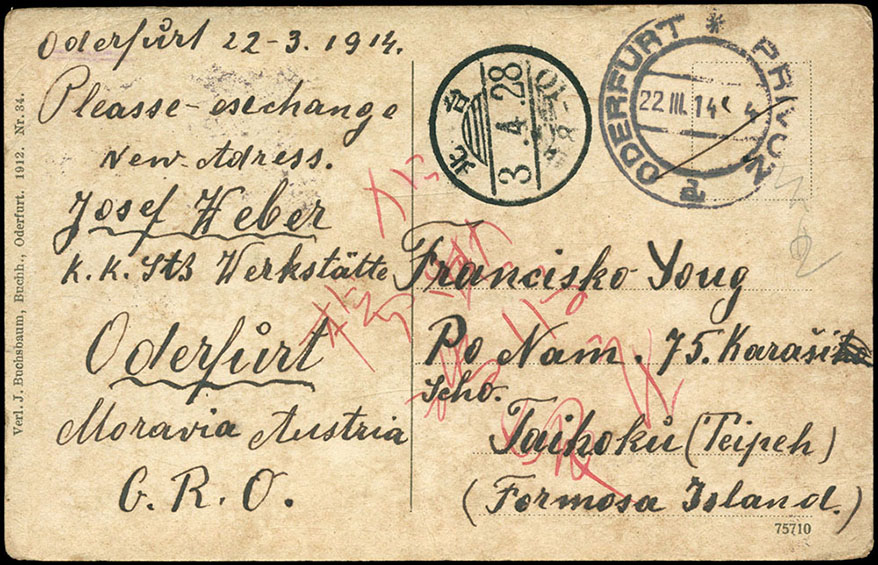 Oderfůrt 22-3. 1914.
Pleasse-eschange
New-Adress.
Josef Weber
K. K. Stb Werkstätte
Oderfůrt
Moravia Austria
C. R. O.
Verl. J. Buchsbaum, Buchh., Oderfurt. 1912. Nr. 34.
台北
3.4.28
ODERFURT * PŘÍVOZ
22 III. 14
a
Francisko Youg
Po Nam. 75. Karaši
Scho.
Taihoků (Teipeh)
(Formosa Island.)
75710